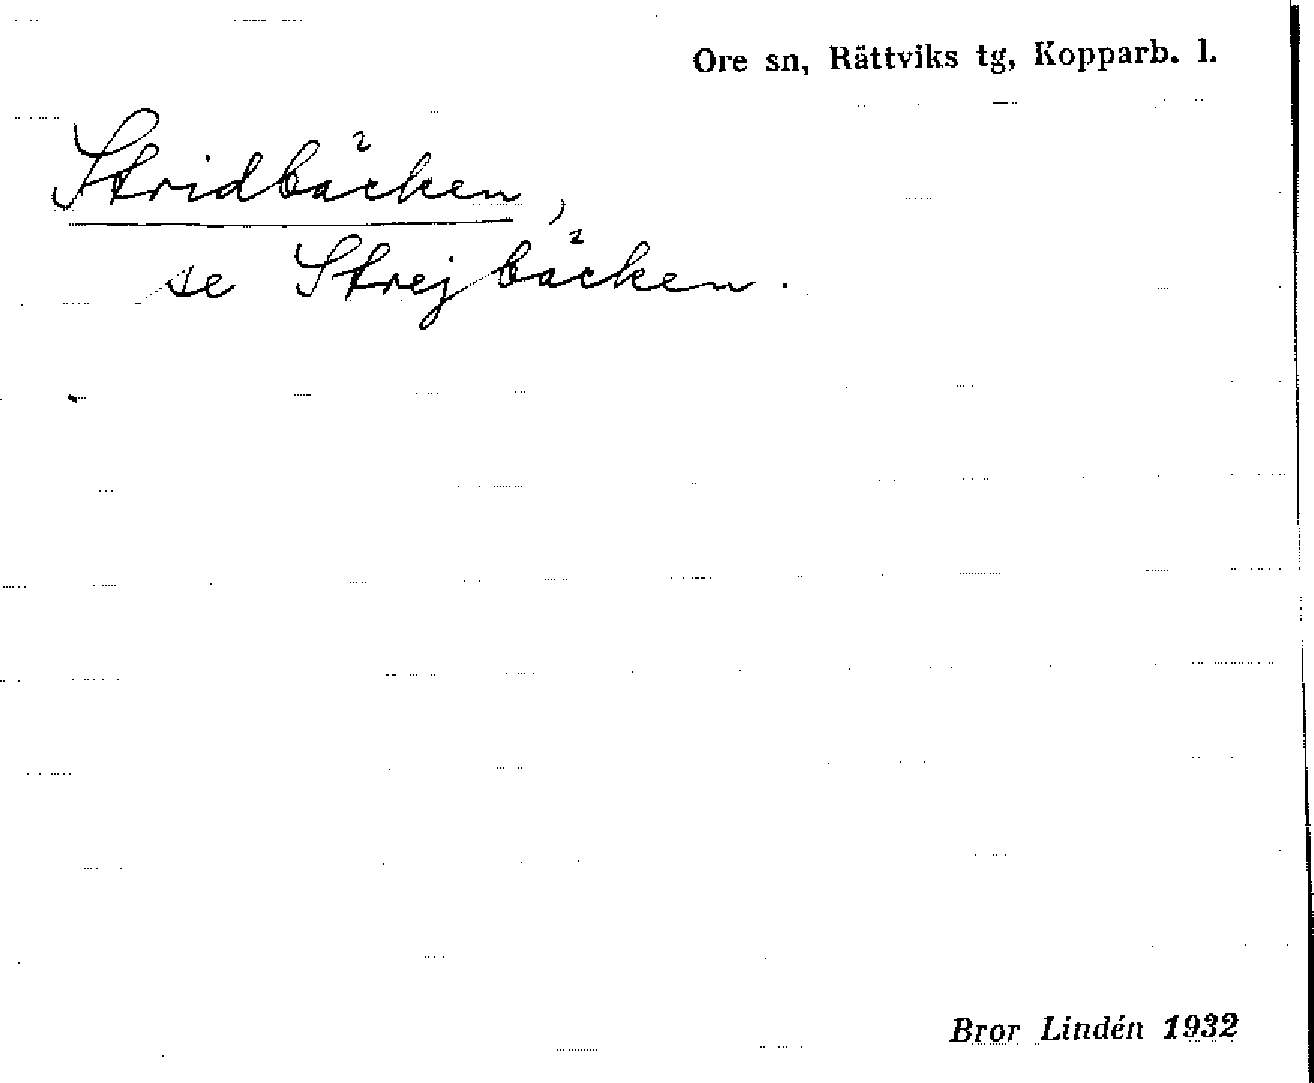 Ore sn, Rättviks tg, Kopparb. l.
Stridbäcken,
se Strejbäcken.
Bror Lindén 1932